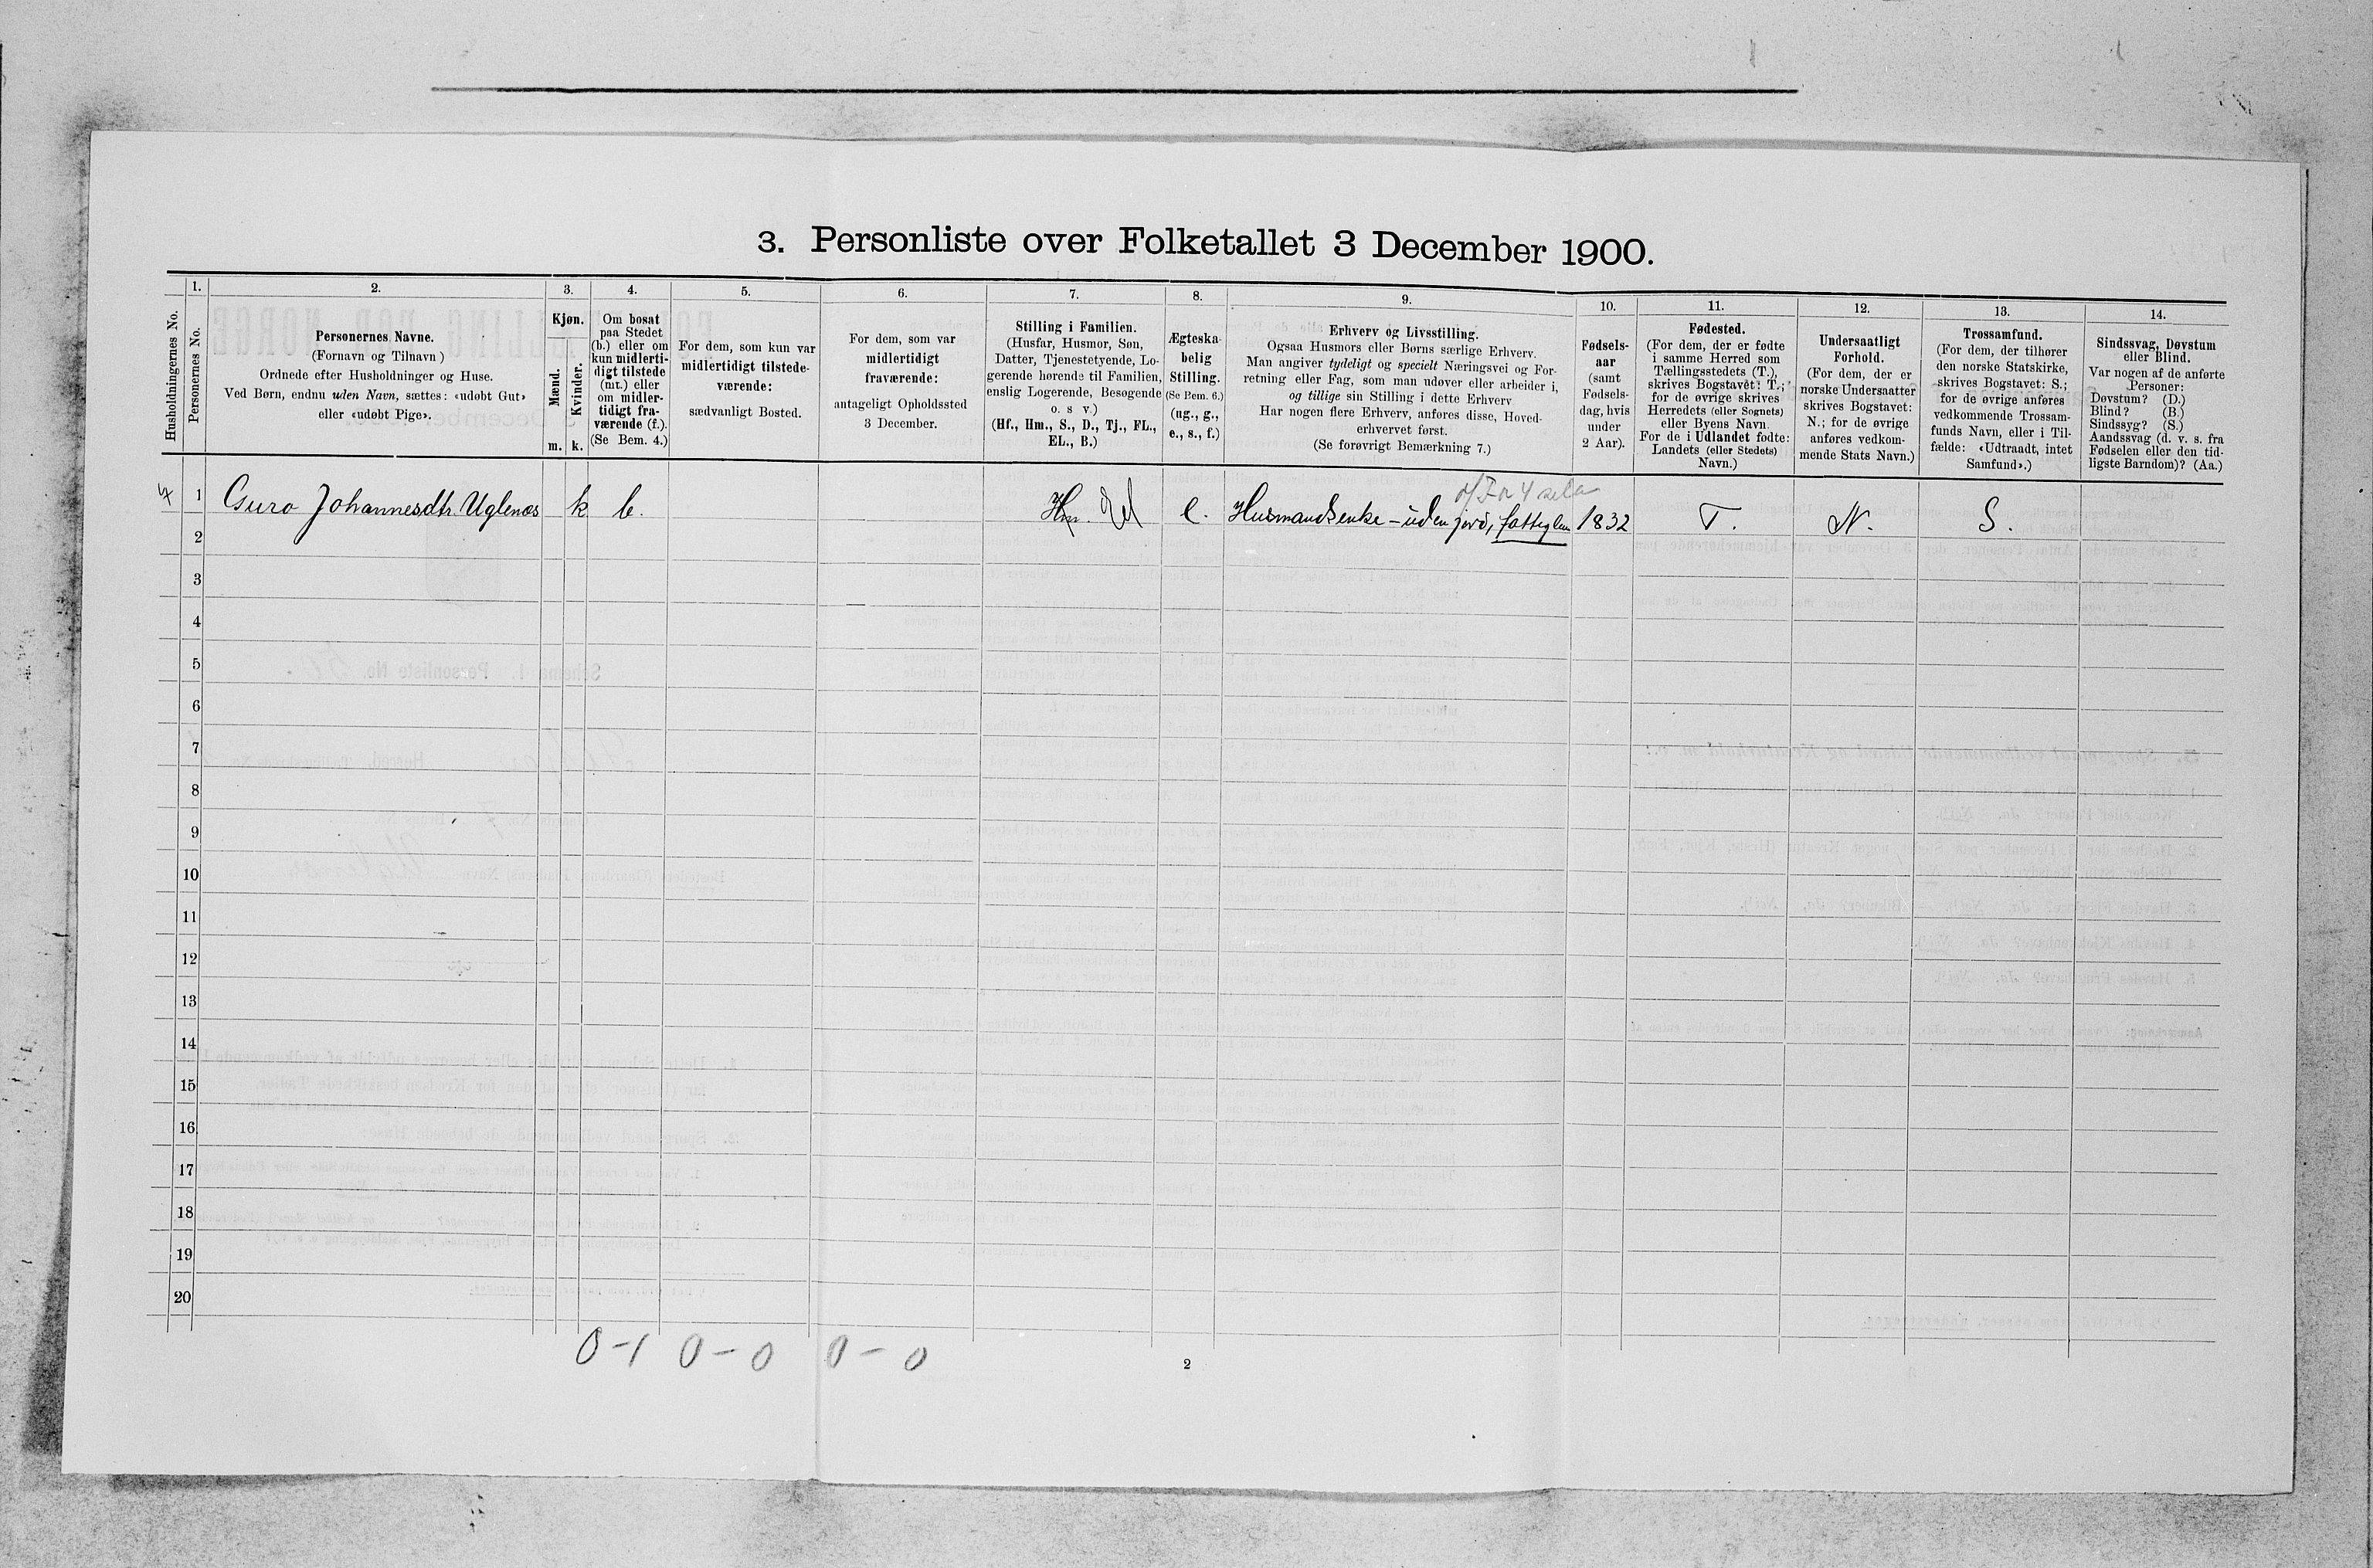 3. Personliste over Folketallet 3 December 1900.
Husholdningernes No.
1.
Personernes No.
2.
Personernes Navne.
(Fornavn og Tilnavn)
Ordnede efter Husholdninger og Huse.
Ved Børn, endnu uden Navn, sættes: «udøbt Gut»
eller «udøbt Pige».
3.
Kjøn.
Mænd.
Kvinder.
m. k.
4.
Om bosat
paa Stedet
(b.) eller om
kun midlerti-
digt tilstede
(mt.) eller
om midler-
tidigt fra-
værende (f.).
(Se Bem. 4.)
5.
For dem, som kun var
midlertidigt tilstede-
værende:
sædvanligt Bosted.
6.
For dem, som var
midlertidigt
fraværende:
antageligt Opholdssted
3 December.
7.
Stilling i Familien.
(Husfar, Husmor, Søn,
Datter, Tjenestetyende, Lo-
gerende hørende til Familien,
enslig Logerende, Besøgende
o. s v.)
(Hf., Hm., S., D., Tj., FL.,
EL., B.)
8.
Ægteska-
belig
Stilling.
(Se Bem. 6.)
(ug., g.,
e., s., f.)
9.
Erhverv og Livsstilling.
Ogsaa Husmors eller Børns særlige Erhverv.
Man angiver tydeligt og specielt Næringsvei og For-
retning eller Fag, som man udøver eller arbeider i,
og tillige sin Stilling i dette Erhverv
Har nogen flere Erhverv, anføres disse, Hoved-
erhvervet først.
(Se forøvrigt Bemærkning 7.)
10.
Fødsels-
aar
(samt
Fødsels-
dag, hvis
under
2 Aar).
11.
Fødested.
(For dem, der er fødte
i samme Herred som
Tællingsstedets (T.),
skrives Bogstavet: T.;
for de øvrige skrives
Herredets (eller Sognets)
eller Byens Navn.
For de i Udlandet fødte:
Landets (eller Stedets)
Navn.)
12.
Undersaatligt
Forhold.
(For dem, der er
norske Undersaatter
skrives Bogstavet:
N.; for de øvrige
anføres vedkom-
mende Stats Navn.)
13.
Trossamfund.
(For dem, der tilhører
den norske Statskirke,
skrives Bogstavet: S.;
for de øvrige anføres
vedkommende Trossam-
funds Navn, eller i Til-
fælde: «Udtraadt, intet
Samfund».)
14.
Sindssvag, Døvstum
eller Blind.
Var nogen af de anførte
Personer:
Døvstum? (D.)
Blind? (B.)
Sindssyg? (S.)
Aandssvag (d. v. s. fra
Fødselen eller den tid-
ligste Barndom)? (Aa.)
1 Guro Johannesdtr. Uglenæs k b. Hm. El e. Husmandsenke - uden jord, fattiglem 1832 T. N. S.
2
3
4
5
6
7
8
9
10
11
12
13
14
15
16
17
18
19
20
0-1 0-0 0-0
2